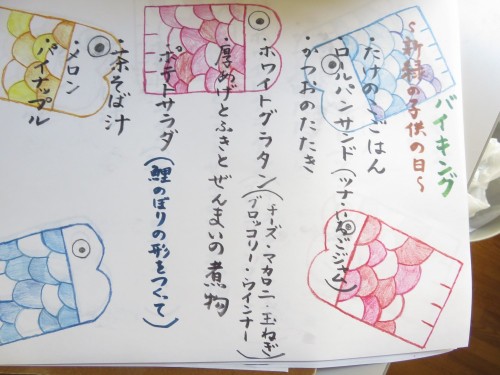 バイキング
～新緑の子供の日～
・たけのこごはん
・ロールパンサンド(ツナ・いちごジャム)
・かつおのたたき
・ホワイトグラタン(チーズ・マカロニ・玉ねぎ
ブロッコリー・ウインナー)
・厚あげとふきとぜんまいの煮物
ポテトサラダ(鯉のぼりの形をつくて)
・茶そば汁
・メロン
・パイナップル